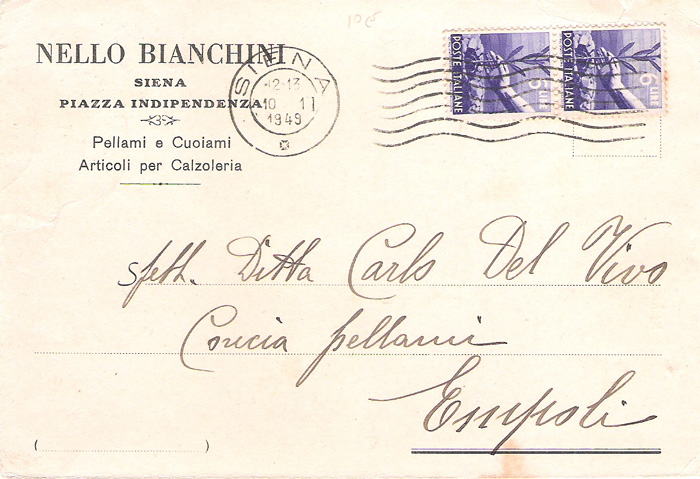 10 €
NELLO BIANCHINI
SIENA
PIAZZA INDIPENDENZA
Pellami e Cuoiami
Articoli per Calzoleria
SIENA
12-13
10 11
1949
POSTE ITALIANE
6 LIRE
POSTE ITALIANE
6 LIRE
spett. Ditta Carlo Del Vivo
Concia pellami
Empoli
( )